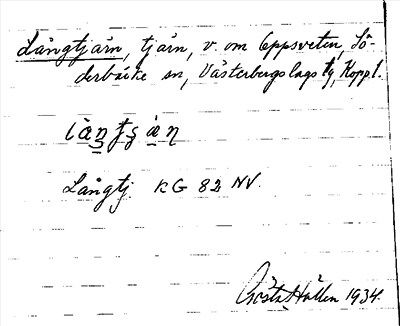 Långtjärn, tjärn, v. om Uppsveten, Sö-
derbärke sn, Västerbergslags tg, Kopp l.
Långtj KG 82 NV.
Gösta Hallén 1934.